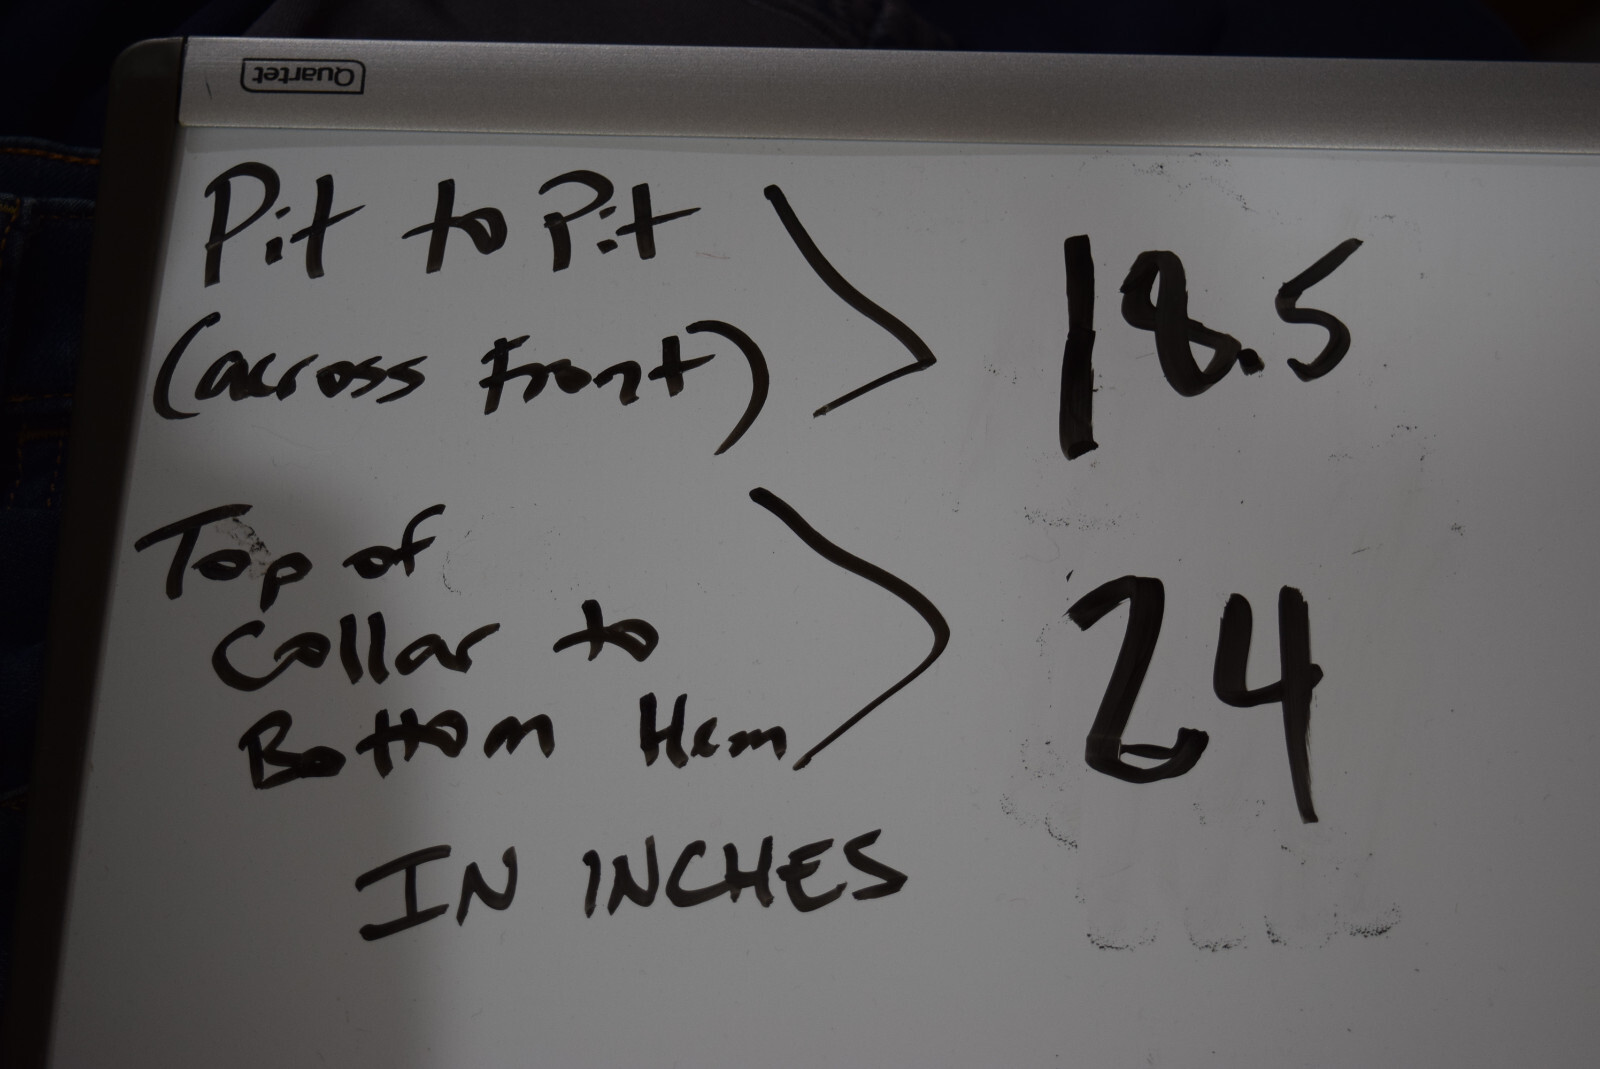 Quartet
Pit to Pit
(across Front)
18.5
Top of
Collar to
Bottom Hem
24
IN INCHES